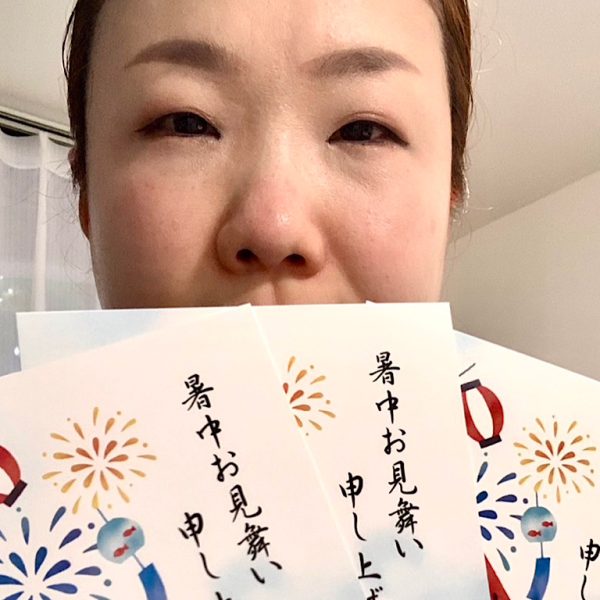 暑中お見舞い
申し上げ
暑中お見舞い
申し上
申し